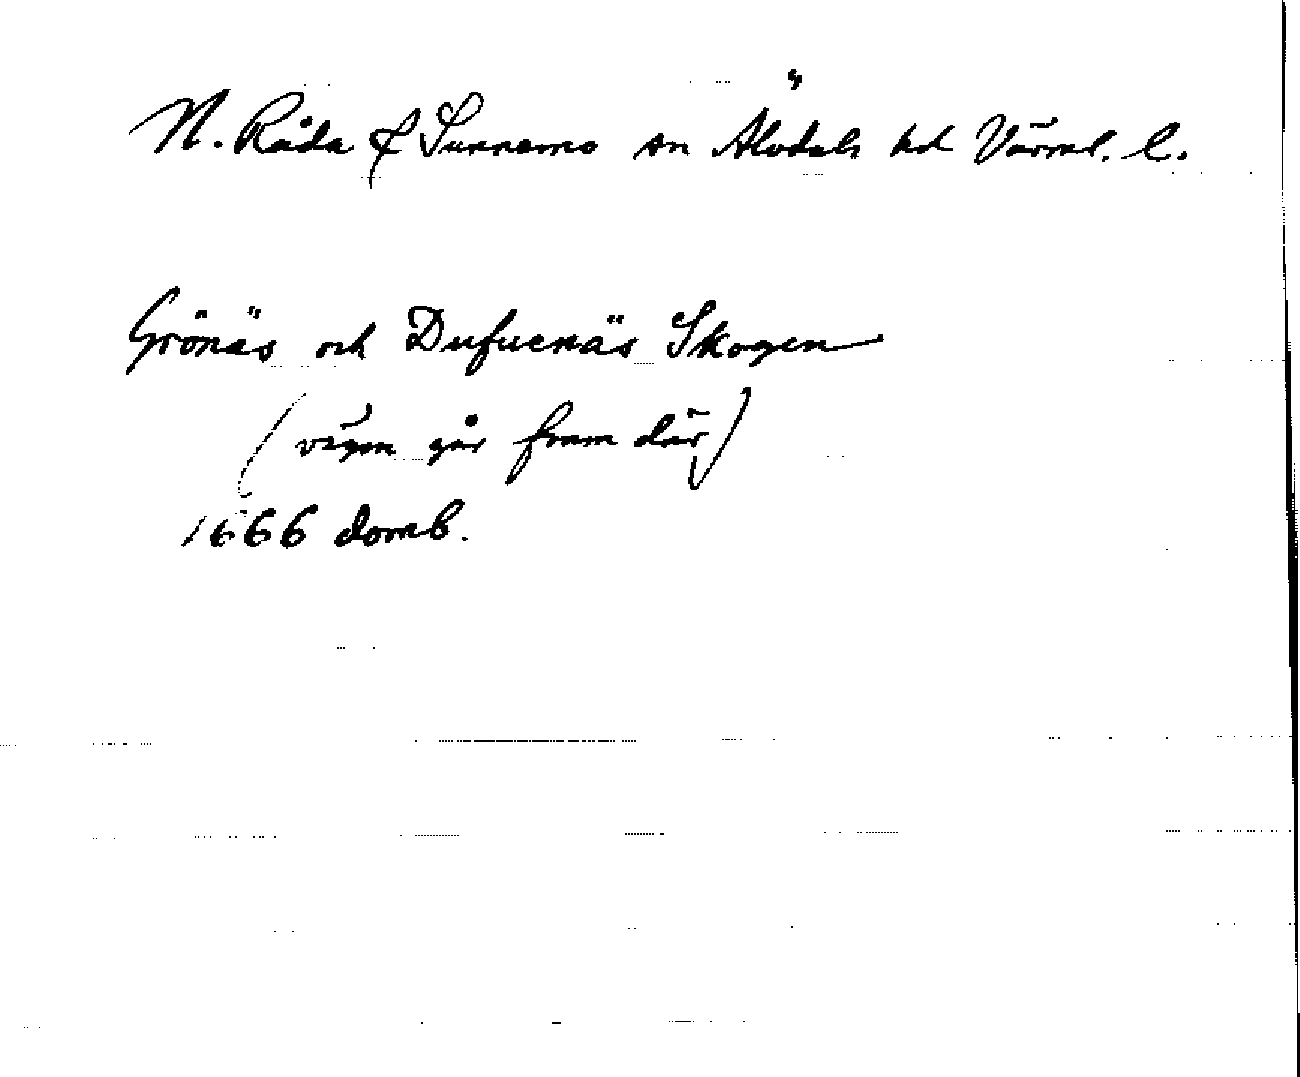 N. Råda & Sunnemo sn Älvdals hd Värml. l.
Grönäs och Dufuenäs Skogen
(vägen går fram där)
1666 domb.